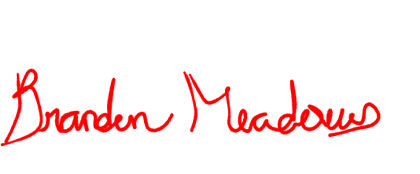 Brandon Meadows